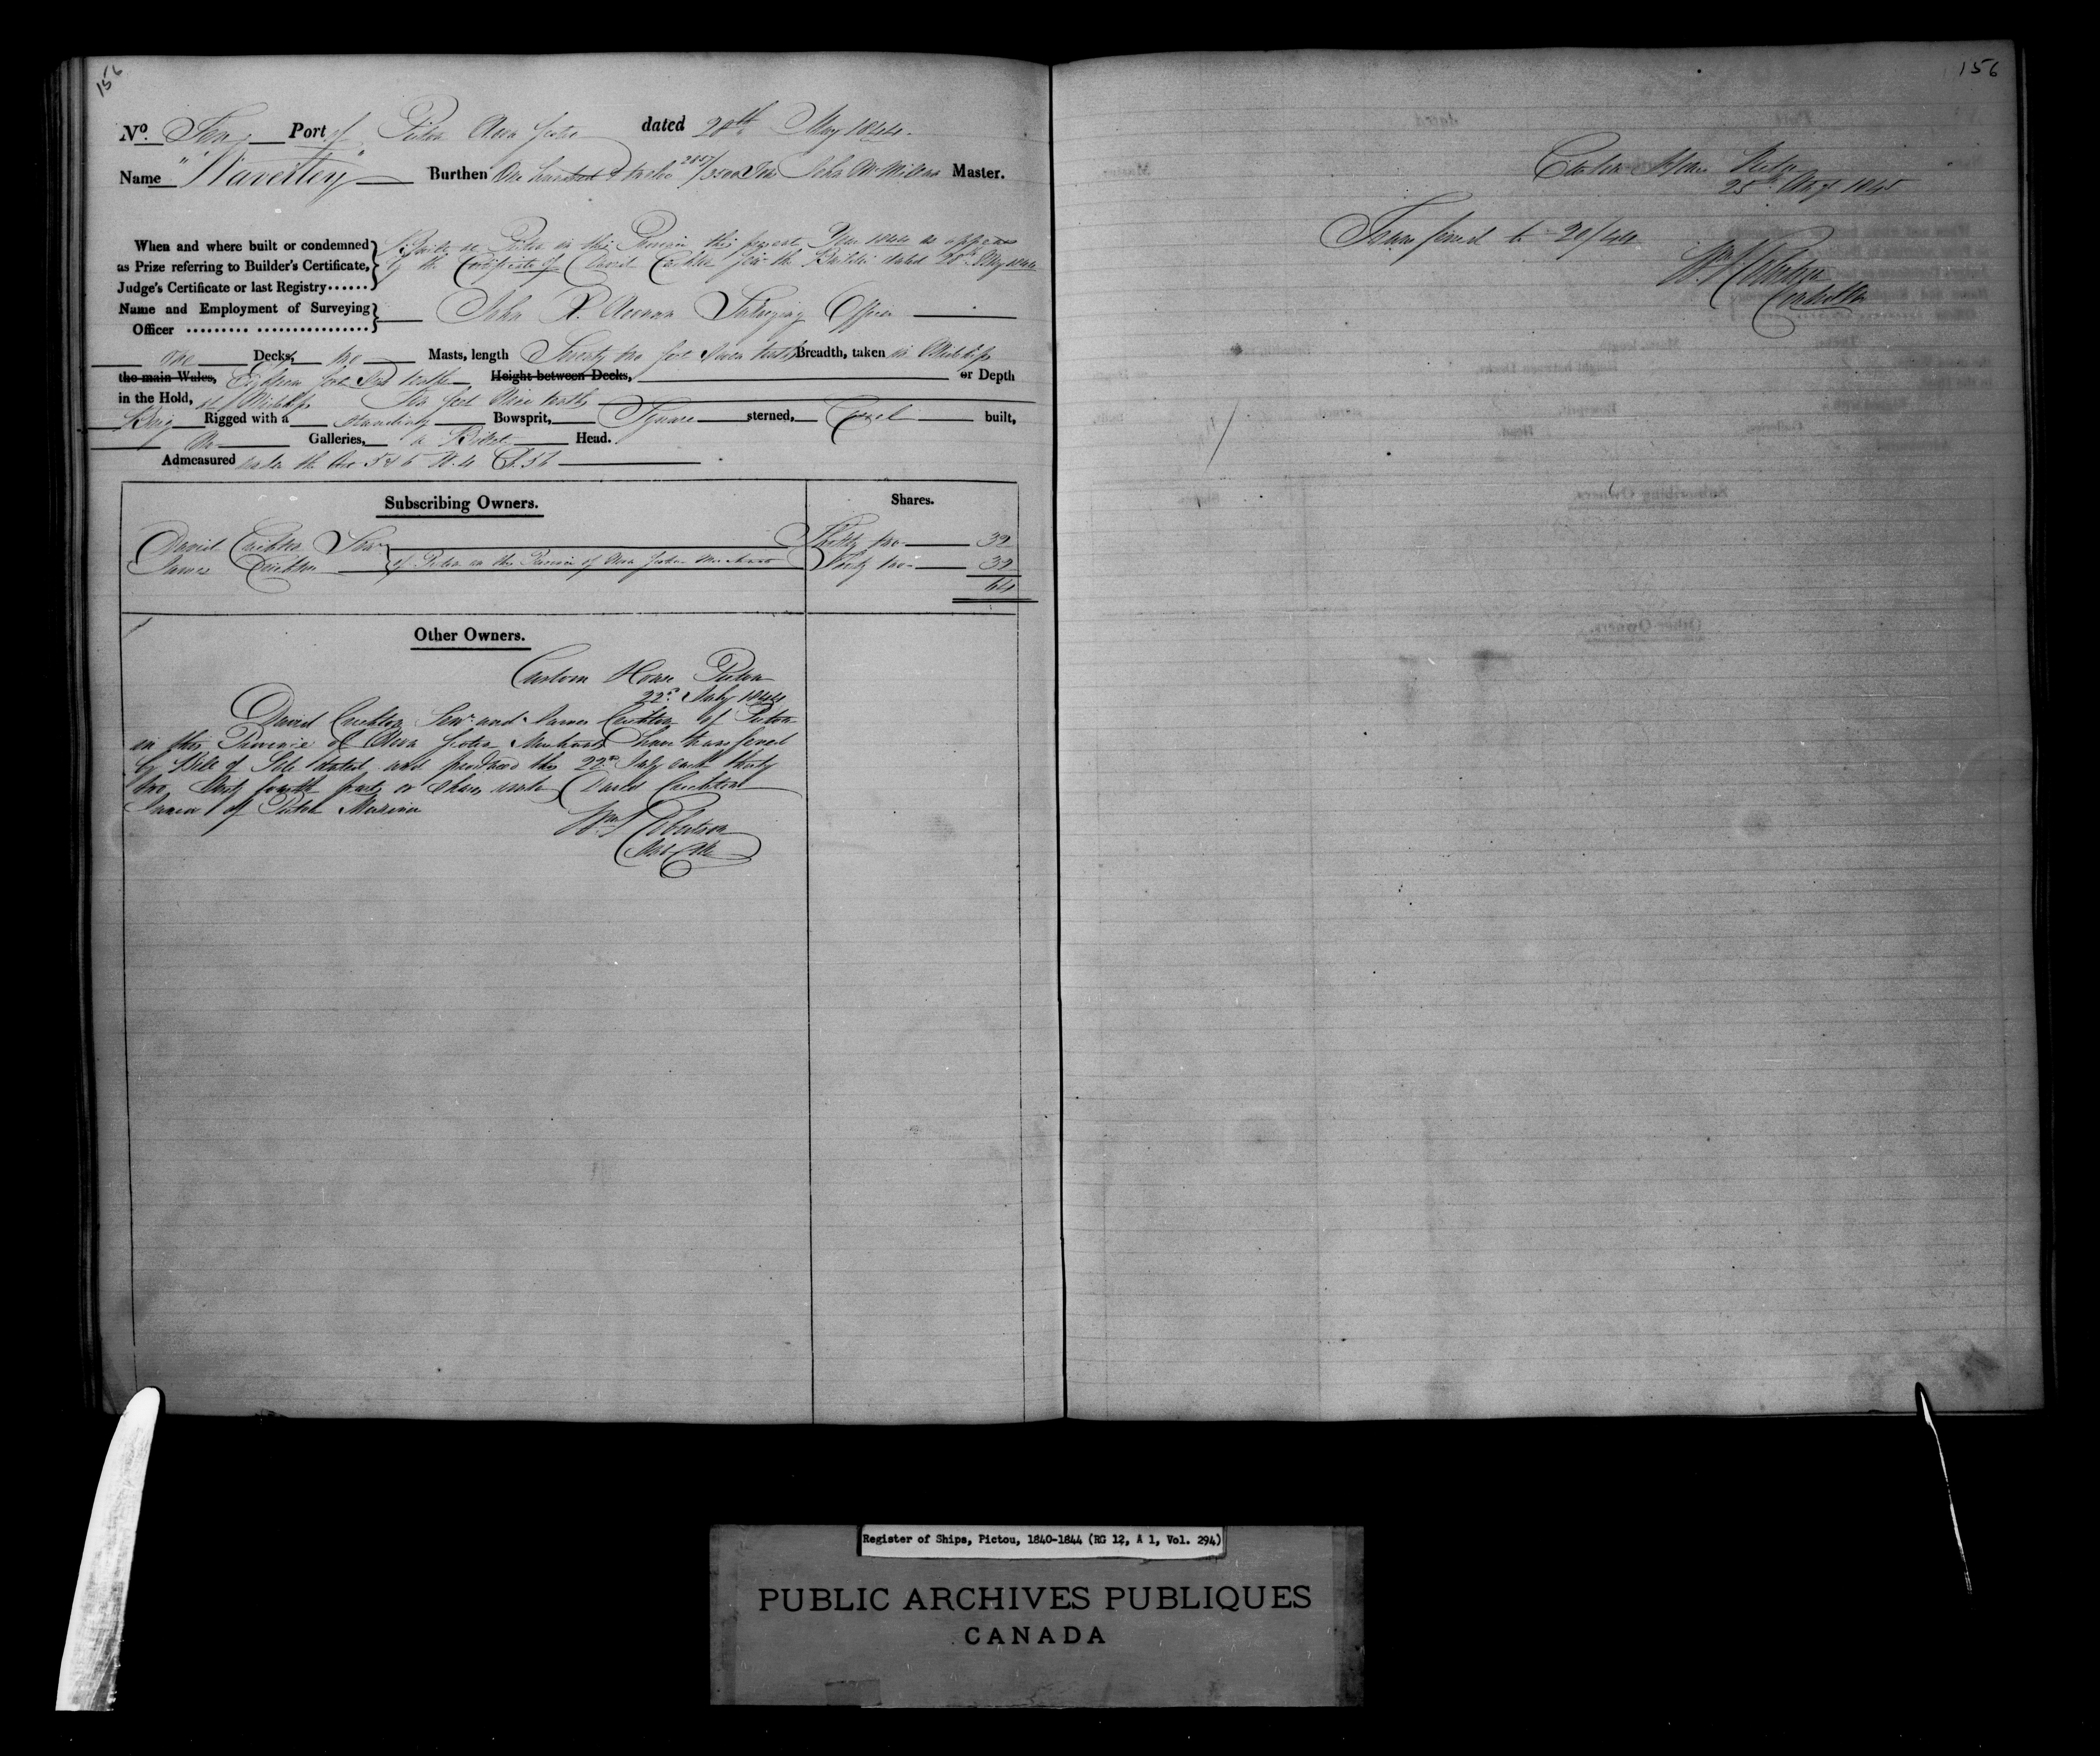 156
No. Ten Port of Pictou Nova Scotia dated 28th May 1844.
Name "Waverley" Burthen One hundred & twelve 2857/3500 Tons John McMillan Master.
When and where built or condemned
as Prize referring to Builder's Certificate,
Judge's Certificate or last Registry......
Built at Pictou in this Province this present Year 1844 as appears
by the Certificate of David Crichton Junr the Builder dated 28th May 1844
Name and Employment of Surveying
Officer
John Surveying Officer
One Decks, two Masts, length Seventy two feet Seven tenths Breadth, taken in Midships
the main Wales, Eighteen feet tenths Height between Decks, or Depth
in the Hold, at Midships Ten feet Nine tenths
Brig Rigged with a standing Bowsprit, Square sterned, Carvel built,
No Galleries, a Billet Head.
Admeasured under the Act 5 & 6 W. 4 C. 56
Subscribing Owners. Shares.
David Crichton Senr Thirty two 32
James Crichton of Pictou in the Province of Nova Scotia Merchants Thirty two 32
64
Other Owners.
Custom House Pictou
22d July 1844
David Crichton Senr and James Crichton of Pictou
in this Province of Nova Scotia Merchants have transfered
by Bill of Sale dated and produced this 22d July each thirty
two Sixty fourth parts or Shares unto David Crichton
Junior of Pictou Mariner
Wm Robertson
156
Custom House Pictou
25th Augt 1845
Transfered to 20/44
Wm Robertson
Controller
Register of Ships, Pictou, 1840-1844 (RG 12, A 1, Vol. 294)
PUBLIC ARCHIVES PUBLIQUES
CANADA